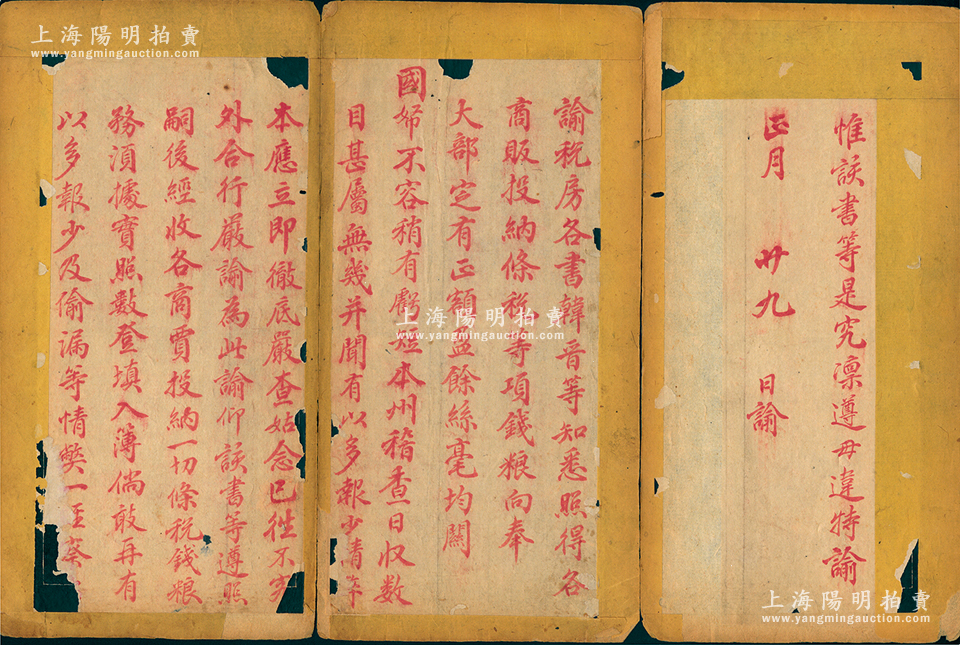 上海陽明拍賣
www.yangmingauction.com
上海陽明拍賣
www.yangmingauction.com
諭税房各書韓晋等知悉照得各
商販投納條税等項錢粮向奉
大部定有正額盈餘絲毫均關
國帑不容稍有虧短本州稽查日収數
目甚屬無幾并聞有以多報少情
本應立即徹底嚴查姑念已徃不究
外合行嚴諭為此諭仰該書等遵照
嗣後經收各商賈投納一切條税錢粮
務湏據實照數登填入簿倘敢再有
以多報少及偷漏等情弊一至察
惟該書等是究凛遵毋違特諭
正月 廿九 日諭
上海陽明拍賣
www.yangmingauction.com